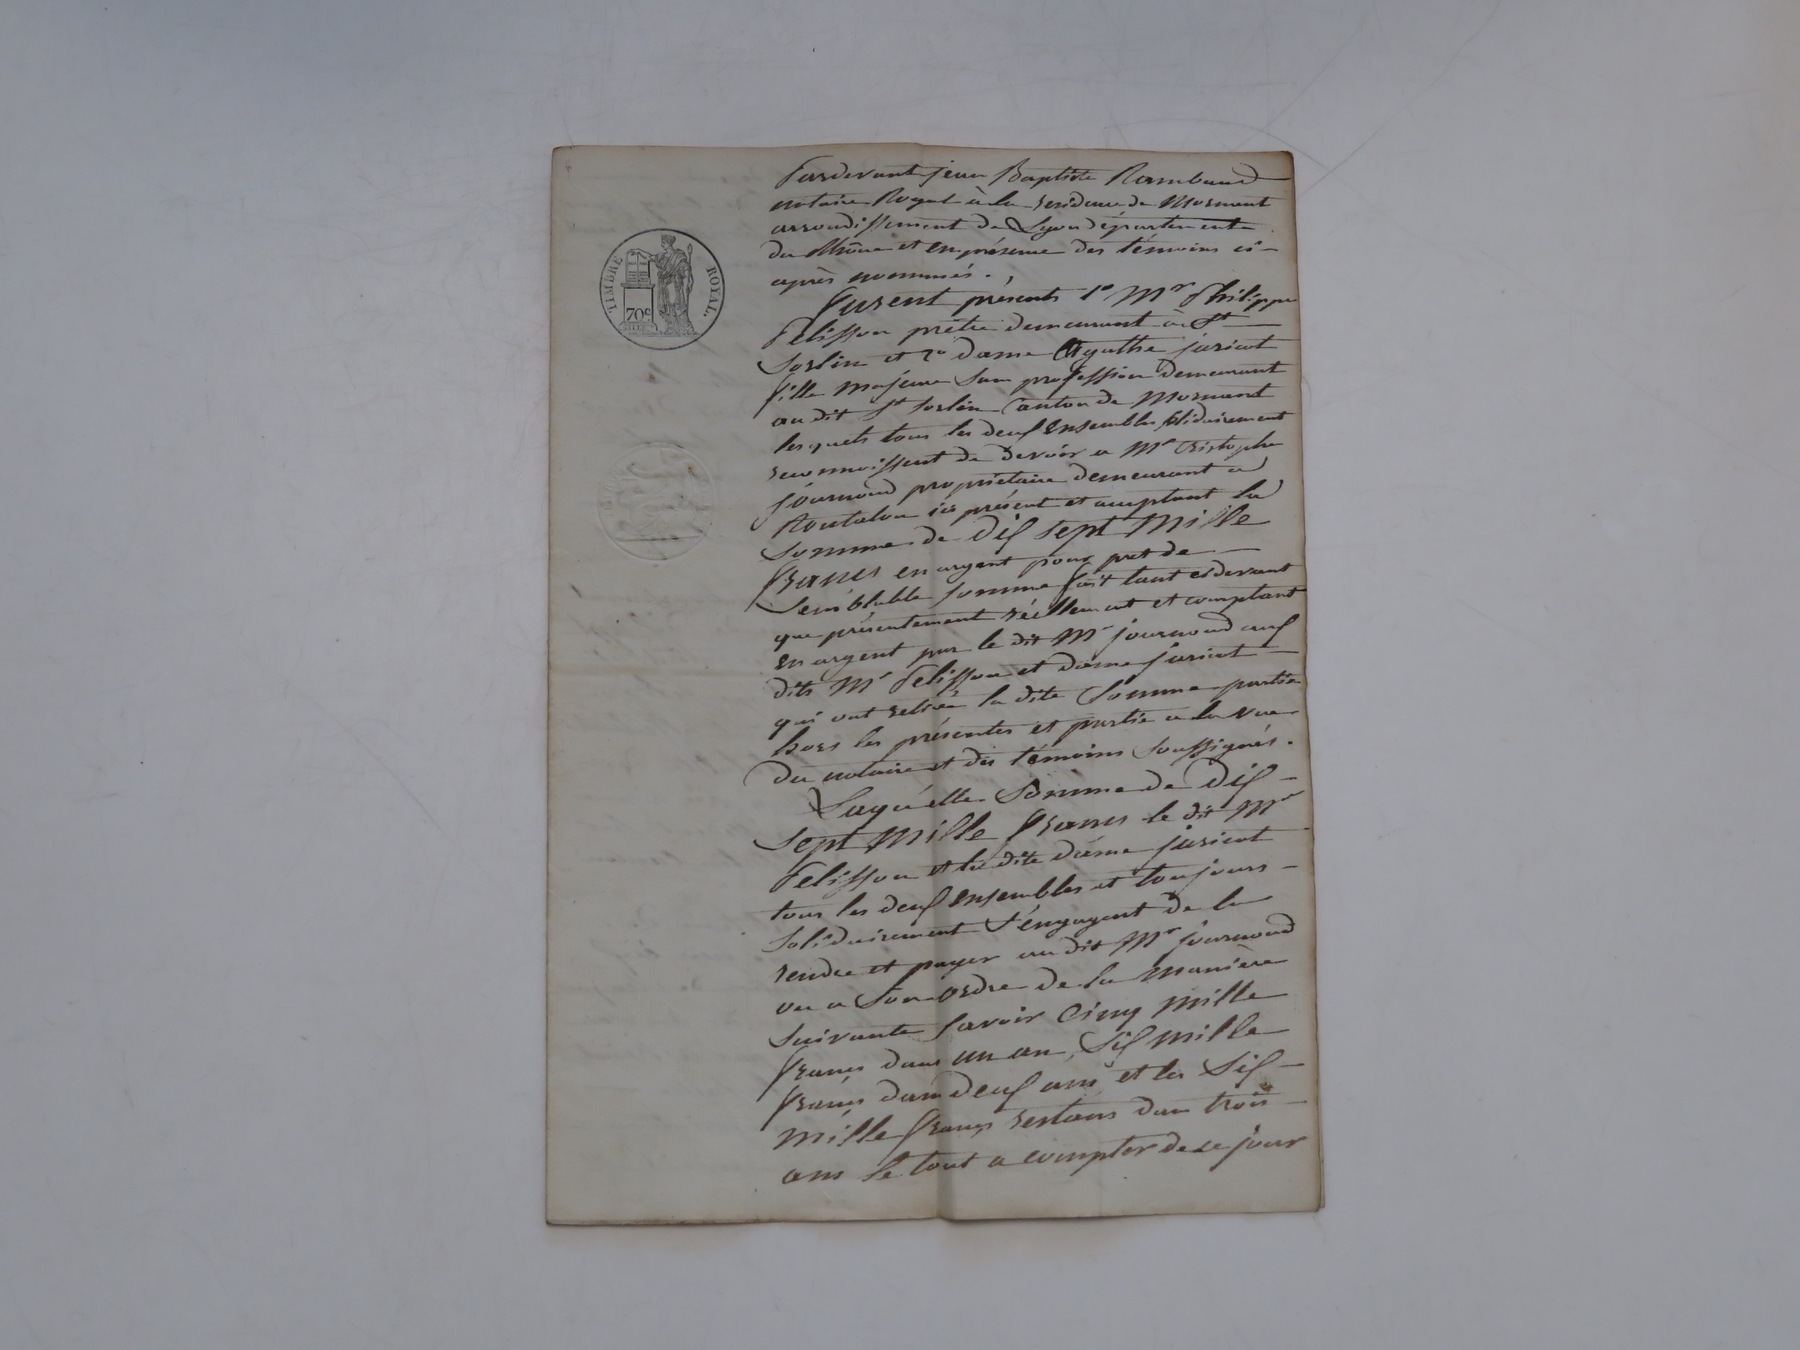 TIMBRE ROYAL.
70c
Pardevant jean Baptiste Rambaud
notaire Royal à la residence de Mornant
arrondissement de Lyon département
du Rhône et en présence des témoins ci-
après nommés.
furent présents 1° Mr Philippe
Pelisson prêtre demeurant à St
Sorlin et 2° dame Agathe juricot
fille majeure San profession demeurant
au dit St Sorlin Canton de Mornant
lesquels tous les deux ensembles solidairement
reconnoissent de devoir a Mr Cristophe
journoud propriétaire demeurant a
Rontalon ici présent et acceptant la
Somme de Dix Sept Mille
francs en argent pour pret de
Semblable Somme fait tant cidevant
que présentement réellement et comptant
en argent par le dit Mr journoud aux
dits Mr Pelisson et dame juricot
qui ont retiré la dite Somme partie
hors les présentes et partie a la vue
du notaire et des témoins Soussignés.
Laquélle Somme de Dix
Sept Mille francs le dit Mr
Pelisson et la dite dame juricot
tous les deux ensembles et toujours
Solidairement S'éngagent de la
rendre et payer au dit Mr journoud
ou a Son ordre de la Manière
Suivante Savoir Cinq Mille
francs dans un an, Six Mille
francs dans deux ans et les Six
Mille francs restans dan trois
ans le tout a compter de ce jour